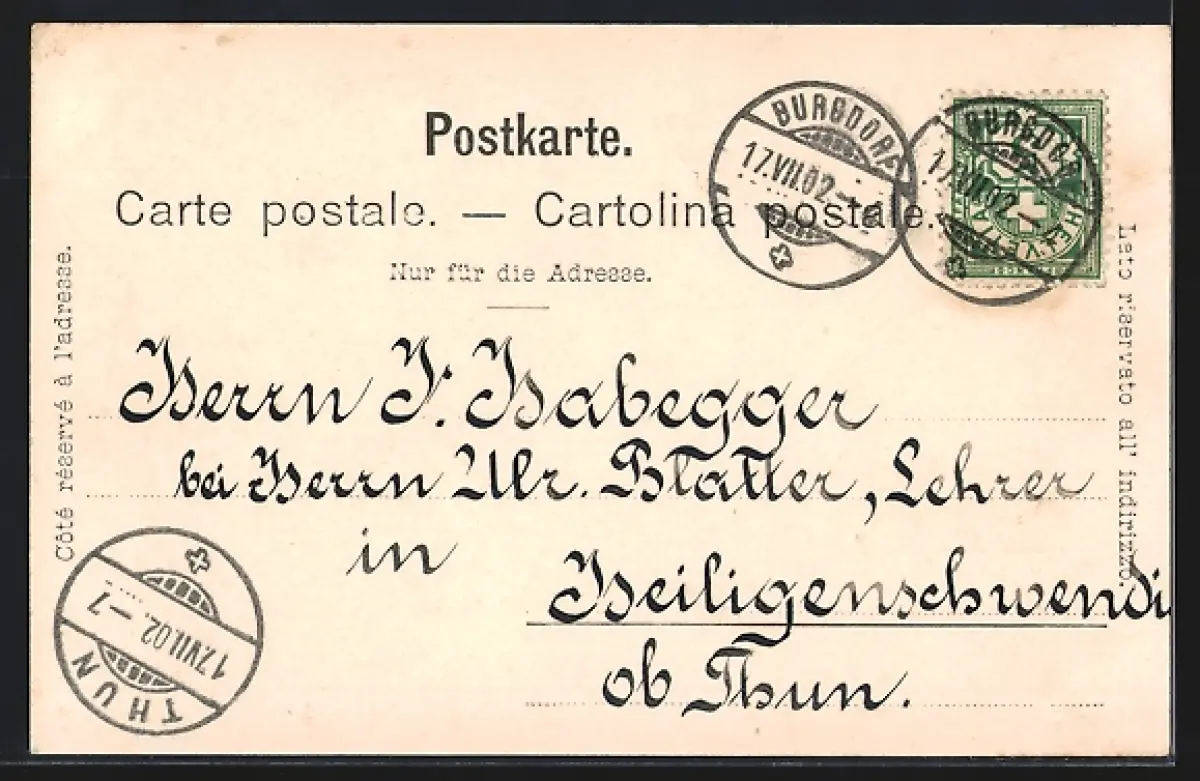 Postkarte.
Carte postale. — Cartolina postale.
Nur für die Adresse.
Côté réservé à l'adresse.
Lato riservato all' indirizzo.
BURGDORF
17.VII.02.
BURGDORF
17.VII.02
HELVETIA
Herrn J. Habegger
bei Herrn Ulr. Blatter, Lehrer
in
Heiligenschwendi
ob Thun.
THUN
17.VII.02.–7